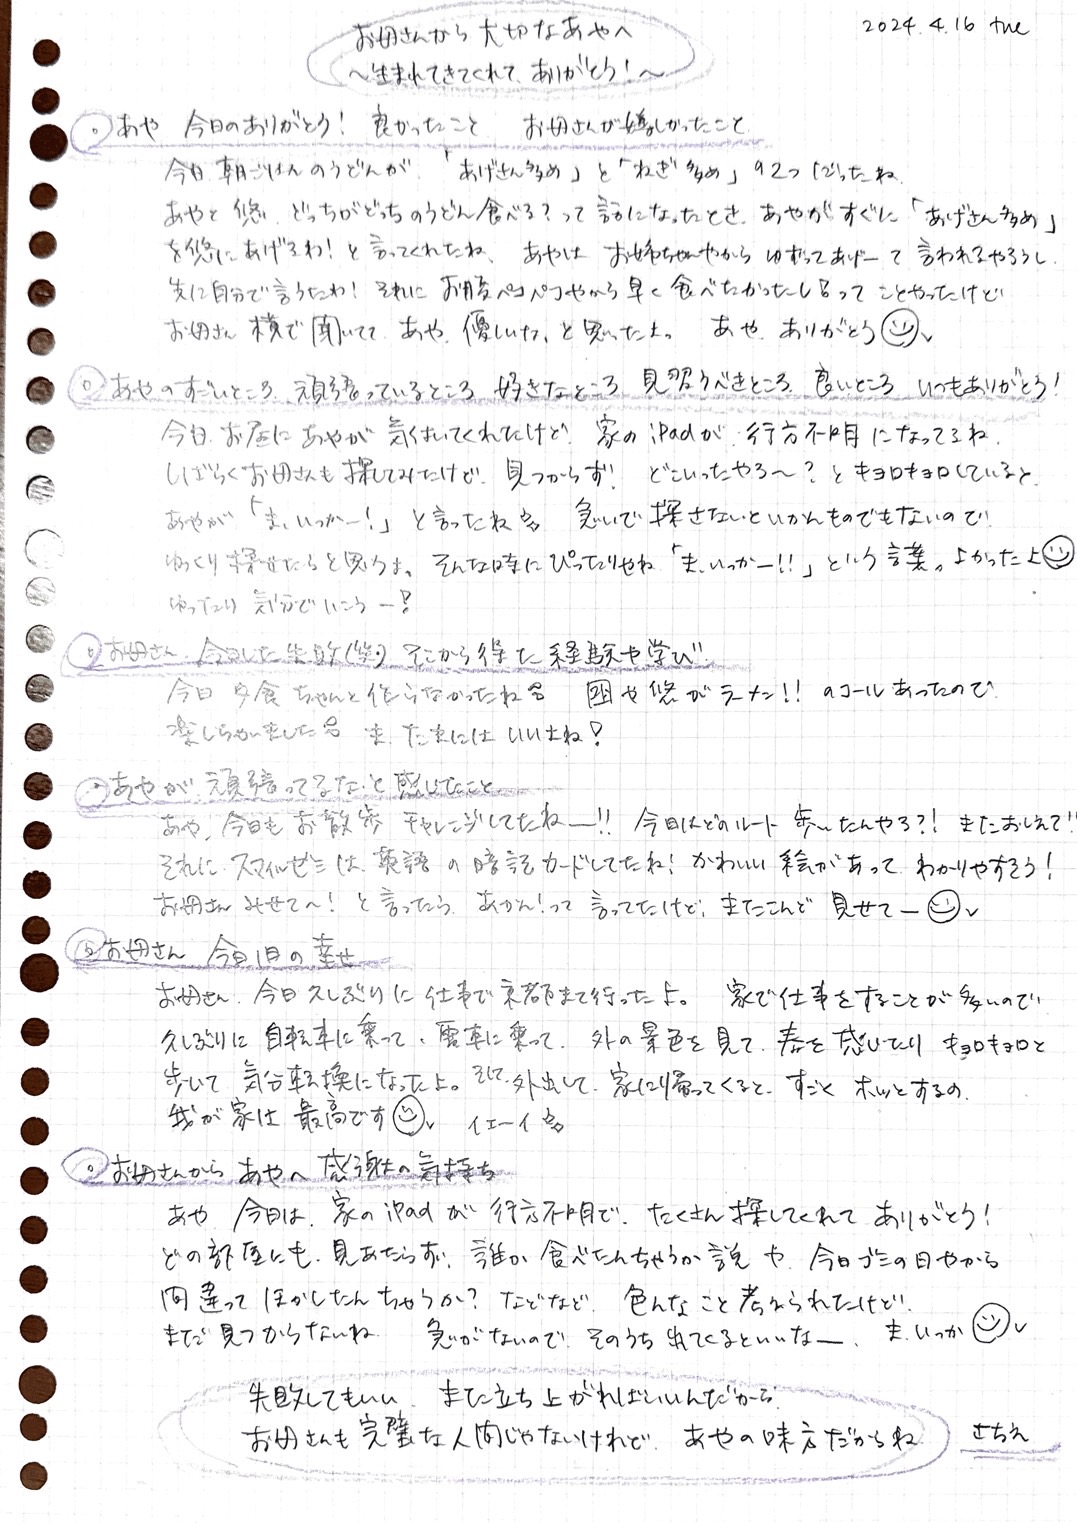 2024.4.16 tue
お母さんから 大切なあやへ
〜生まれてきてくれて、ありがとう！〜
あや 今日のありがとう！ 良かったこと お母さんが嬉しかったこと
今日、朝ごはんのうどんが、「あげさん多め」と「ねぎ多め」の2つだったね。
あやと悠、どっちがどっちのうどん食べる？って話になったとき、あやがすぐに「あげさん多め」
を悠にあげるわ！と言ってくれたね、あやは お姉ちゃんやから ゆずってあげーて 言われるやろうし、
先に自分で言うたわ！ それに お腹ペコペコやから早く食べたかったしるってことやったけど
お母さん 横で聞いてて、あや、優しいな、と思ったよ。 あや、ありがとう
あやのすごいところ、頑張っているところ、好きなところ、見習うべきところ、良いところ いつもありがとう！
今日、お昼にあやが 気付いてくれたけど、家のiPadが、行方不明になってるね、
しばらくお母さんも探してみたけど、見つからず！ どこいったやろ〜？とキョロキョロしていると、
あやが「ま、いっかー！」と言ったね 急いで探さないといかんものでもないので、
ゆっくり探せたらと思うよ。そんな時にぴったりやね「ま、いっかー!!」という言葉。よかったよ
ゆったり気分でいこうー！
お母さん、今日した失敗(笑) そこから得た経験や学び
今日 夕食 ちゃんと作らなかったね 囲や悠がラーメン!! のコールあったので、
楽しちゃいました ま、たまにはいいよね！
あやが 頑張ってるな、と感じたこと
あや、今日もお散歩 チャレンジしてたねー!! 今日はどのルート 歩いたんやろ？! またおしえて!!
それに、スマイルゼミは、英語の暗記カードしてたね！ かわいい絵があって、わかりやすそう！
お母さん みせて〜！と言ったら、あかん！って言ってたけど、またこんど見せてー
お母さん 今日1日の幸せ
お母さん、今日 久しぶりに仕事で京都まで行ったよ。 家で仕事をすることが多いので、
久しぶりに自転車に乗って、電車に乗って、外の景色を見て、春を感じたり キョロキョロと
歩いて 気分転換になったよ。そして、外出して、家に帰ってくると、すごく ホッとするの、
我が家は最高です イエーイ
お母さんから あやへ 感謝の気持ち
あや、今日は、家のiPadが 行方不明で、たくさん探してくれて ありがとう！
どの部屋にも、見あたらず、誰か食べたんちゃうか説や、今日ゴミの日やから
間違って ほかしたんちゃうか？などなど、色んなこと考えられたけど、
まだ見つからないね 急がないので、そのうち出てくるといいなー、 ま、いっか
失敗してもいい、また立ち上がればいいんだから、
お母さんも完璧な人間じゃないけれど、あやの味方だからね
さちえ